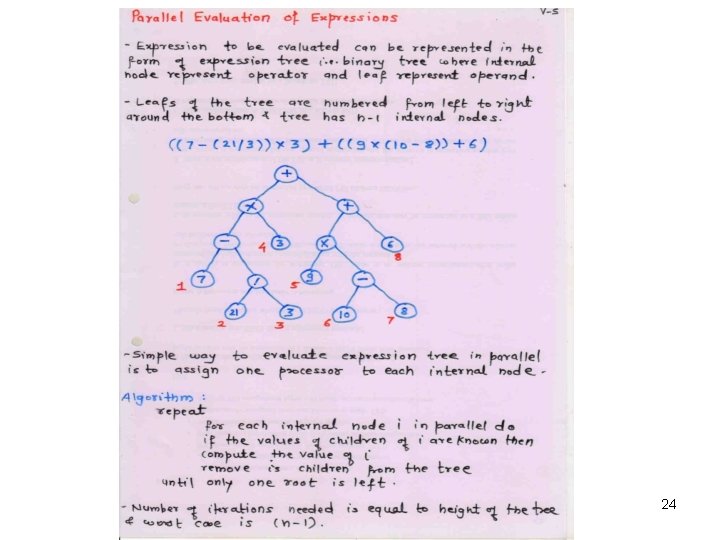 Parallel Evaluation of Expressions
V-5
- Expression to be evaluated can be represented in the
form of expression tree i.e. binary tree where internal
node represent operator and leaf represent operand.
- Leafs of the tree are numbered from left to right
around the bottom & tree has n-1 internal nodes.
((7 - (21/3)) × 3) + ((9 × (10 - 8)) + 6)
+
× +
- 4 3 × 6
8
1 7 / 5 9 -
21 3 10 8
2 3 6 7
- Simple way to evaluate expression tree in parallel
is to assign one processor to each internal node.
Algorithm :
repeat
for each internal node i in parallel do
if the values of children of i are known then
compute the value of i
remove is children from the tree
until only one root is left.
- Number of iterations needed is equal to height of the tree
& worst case is (n-1).
24